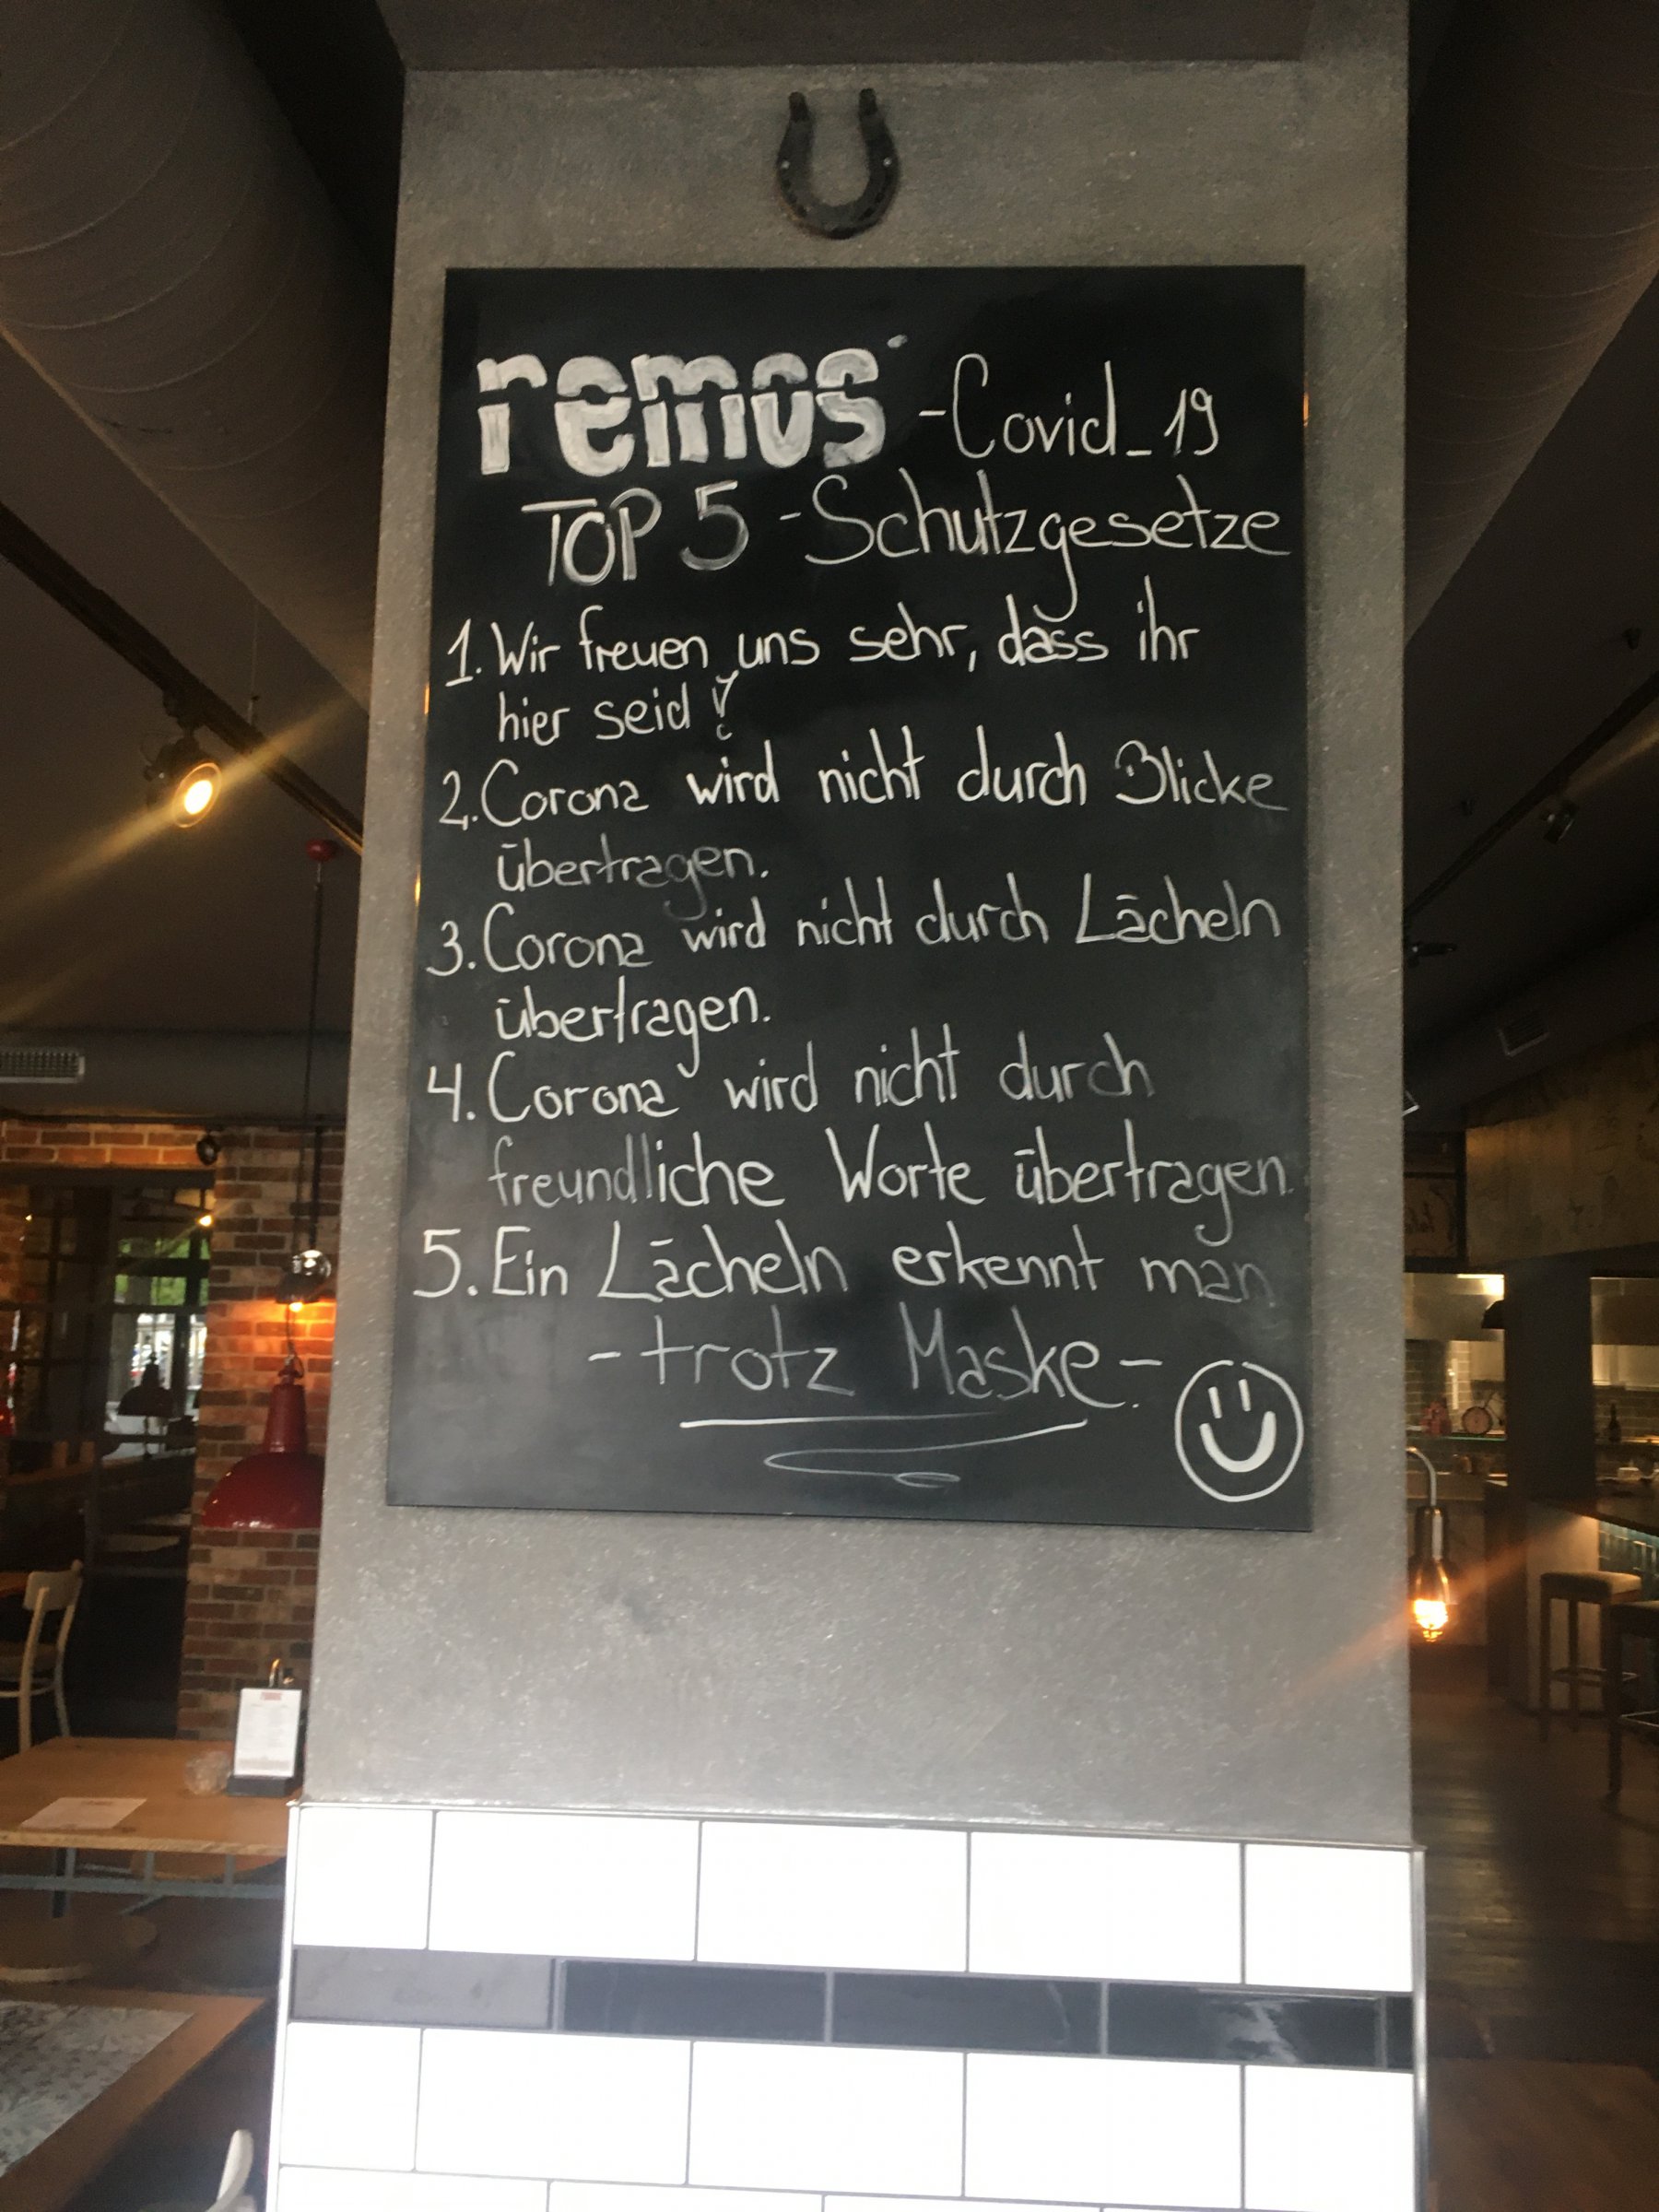 remos -Covid_19
TOP 5 -Schutzgesetze
1. Wir freuen uns sehr, dass ihr
hier seid!
2. Corona wird nicht durch Blicke
übertragen.
3. Corona wird nicht durch Lächeln
übertragen.
4. Corona wird nicht durch
freundliche Worte übertragen.
5. Ein Lächeln erkennt man
-trotz Maske-